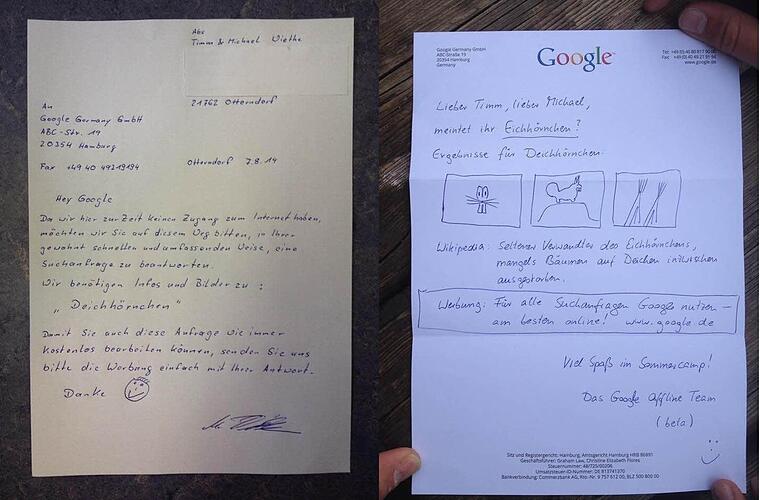 Abs
Timm & Michael Wiethe
21762 Otterndorf
An
Google Germany GmbH
ABC-Str. 19
20354 Hamburg
Fax +49 40 49219194
Otterndorf 7.8.14
Hey Google
Da wir hier zur Zeit keinen Zugang zum Internet haben,
möchten wir Sie auf diesem Weg bitten, in Ihrer
gewohnt schnellen und umfassenden Weise, eine
Suchanfrage zu beantworten.
Wir benötigen Infos und Bilder zu:
„Deichhörnchen"
Damit Sie auch diese Anfrage wie immer
kostenlos bearbeiten können, senden Sie uns
bitte die Werbung einfach mit Ihrer Antwort.
Danke
Google Germany GmbH
ABC-Straße 19
20354 Hamburg
Germany
Google
www.google.de
Lieber Timm, lieber Michael,
meintet ihr Eichhörnchen?
Ergebnisse für Deichhörnchen:
Wikipedia: Seltener Verwandter des Eichhörnchens,
mangels Bäumen auf Deichen inzwischen
ausgestorben.
Werbung: Für alle Suchanfragen Google nutzen –
am besten online! www.google.de
Viel Spaß im Sommercamp!
Das Google Offline Team
(beta)
Sitz und Registergericht: Hamburg, Amtsgericht Hamburg HRB 86891
Geschäftsführer: Graham Law, Christine Elizabeth Flores
Steuernummer: 48/725/00206
Umsatzsteuer-ID-Nummer: DE 813741370
Bankverbindung: Commerzbank AG, Kto.-Nr. 9 757 612 00, BLZ 500 800 00